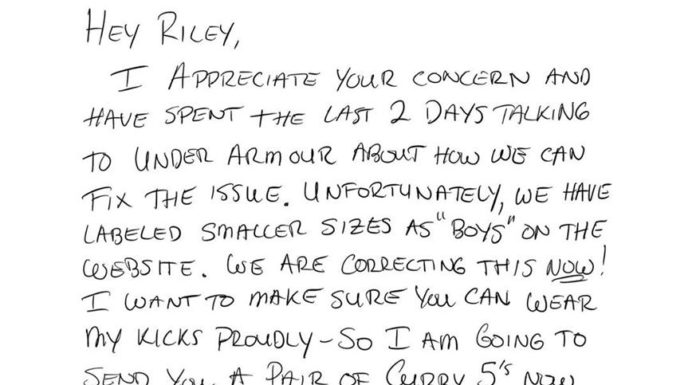 HEY RILEY,
I APPRECIATE YOUR CONCERN AND
HAVE SPENT THE LAST 2 DAYS TALKING
TO UNDER ARMOUR ABOUT HOW WE CAN
FIX THE ISSUE. UNFORTUNATELY, WE HAVE
LABELED SMALLER SIZES AS "BOYS" ON THE
WEBSITE. WE ARE CORRECTING THIS NOW!
I WANT TO MAKE SURE YOU CAN WEAR
MY KICKS PROUDLY - SO I AM GOING TO
SEND YOU A PAIR OF CURRY 5'S NOW